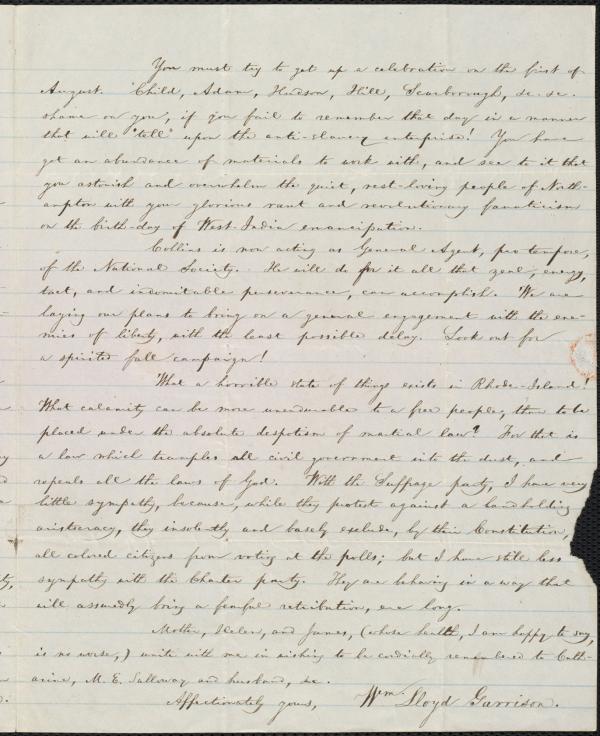 You must try to get up a celebration on the first of
August. Child, Adam, Hudson, Hill, Scarborough, &c. &c.
shame on you, if you fail to remember that day in a manner
that will "tell" upon the anti-slavery enterprise! You have
got an abundance of materials to work with, and see to it that
you astonish and overwhelm the quiet, rest-loving people of North-
ampton with you glorious rant and revolutionary fanaticism
on the birth-day of West-India emancipation.
Collins is now acting as General Agent, pro tempore,
of the National Society. He will do for it all that zeal, energy,
tact, and indomitable perseverance, can accomplish. We are
laying our plans to bring on a general engagement with the ene-
mies of liberty, with the least possible delay. Look out for
a spirited fall campaign!
What a horrible state of things exists in Rhode-Island!
What calamity can be more unendurable to a free people, than to be
placed under the absolute despotism of martial law? For that is
a law which tramples all civil government into the dust, and
repeals all the laws of God. With the Suffrage party, I have very
little sympathy, because, while they protest against a landholding
aristocracy, they insolently and basely exclude, by their Constitution,
all colored citizens from voting at the polls; but I have still less
sympathy with the Charter party. They are behaving in a way that
will assuredly bring a fearful retribution, ere long.
Mother, Helen, and James, (whose health, I am happy to say,
is no worse,) unite with me in wishing to be cordially remembered to Cath-
arine, M. E. Galloway and husband, &c.
Affectionately yours,
Wm. Lloyd Garrison.